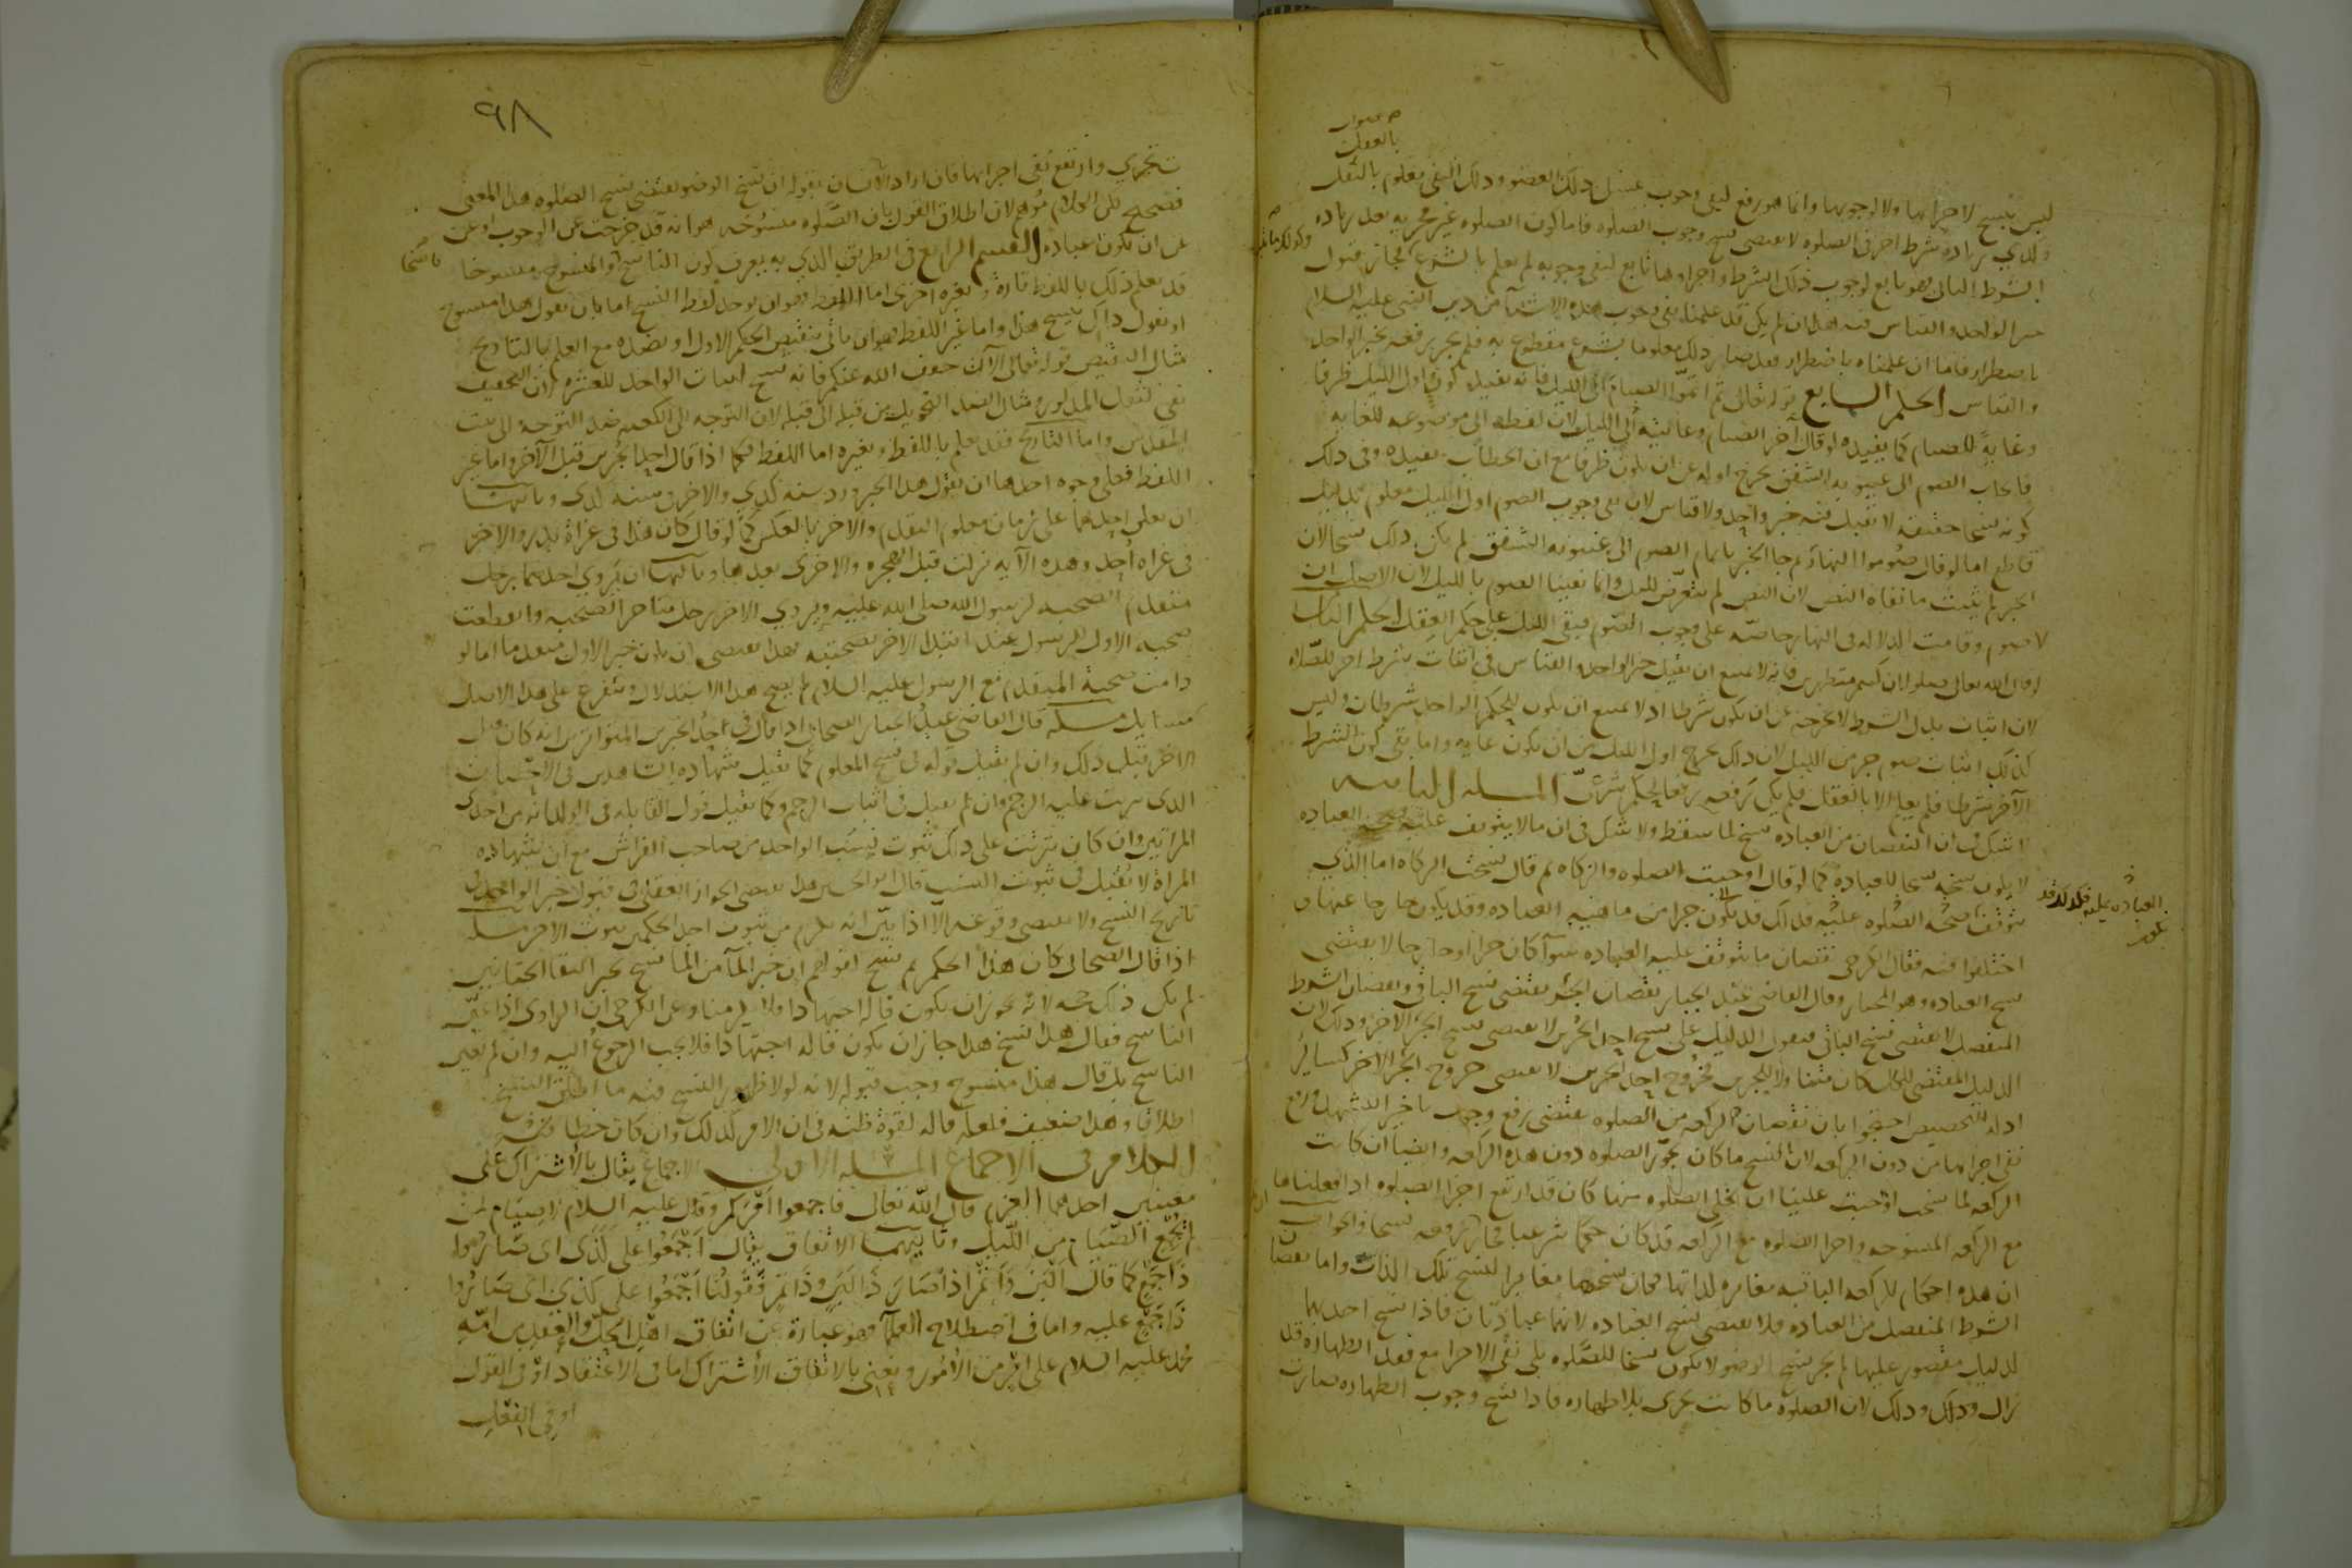 صوابه
بالعقل
ليس بنسخ لاجزائها ولا لوجوبها وانما هو رفع لنفي وجوب غسل ذلك العضو وذلك النفي معلوم بالعقل
وكذي زياده شرط اخر في الصلوه لا يقتضي نسخ وجوب الصلوه فاما كون الصلوه غير مجزيه بعد زياده
الشرط الثاني فهو تابع لوجوب ذلك الشرط واجزاوها تابع لنفي وجوبه لم يعلم بالشرع فجاز قبول
خبر الواحد والقياس فيه هذا ان لم يكن قد علمنا نفي وجوب هذه الاشيا من دين النبي عليه السلام
باضطرار فاما ان علمناه باضطرار فقد صار ذلك معلوما بشرع مقطوع به فلم يجز رفعه بخبر الواحد
والقياس الحكم السابع قوله تعالى ثم اتموا الصيام الى الليل فانه يفيد كون اول الليل طرفا
وغاية للصيام كما يفيده لو قال آخر الصيام وغايته الليل لان لفظه الى موضوعه للغايه
فايجاب الصوم الى غيبوبه الشفق يخرج اوله عن ان يكون طرفا مع ان الخطاب يفيده وفي ذلك
كونه نسخا حقيقه لا يقبل فيه خبر واحد ولا قياس لان نفي وجوب الصوم اول الليل معلوم بدليل
قاطع اما لو قال صوموا النهار ثم جا الخبر باتمام الصوم الى غيبوبه الشفق لم يكن ذلك نسخا لان
الخبر لم يثبت ما نفاه النص لان النص لم يتعرض لليل وانما نفينا الصوم بالليل لان الاصل ان
لا صوم وقامت الدلاله في النهار خاصه على وجوب الصوم فبقي الليل على حكم العقل الحكم الثامن
لو قال الله تعالى صلوا ان كنتم متطهرين فانه لا يمتنع ان يقبل خبر الواحد والقياس في اثبات شرط اخر للصلاه
لان اثبات بدل الشرط لا يخرجه عن ان يكون شرطا اذ لا يمتنع ان يكون للحكم الواحد شرطان وليس
كذلك اثبات صوم جزء من الليل لان ذلك يخرج اول الليل من ان يكون غايه واما نفي كون الشرط
الآخر شرطا فلم يعلم الا بالعقل فلم يكن رفعه رفعا لحكم شرعي المسله الثامنه
لا شك في ان النقصان من العباده نسخ لما سقط ولا شك في ان ما لا يتوقف عليه صحه العباده
لا يكون نسخه نسخا للعباده كما لو قال اوجبت الصلوه والزكاه ثم قال نسخت الزكاه اما الذي
يتوقف صحه الصلوه عليه فذلك قد يكون جزا من ماهيه العباده وقد يكون خارجا عنها و
اختلفوا فيه فقال الكرخي نقصان ما يتوقف عليه العباده سوآ كان جزا او خارجا لا يقتضي
نسخ العباده وهو المختار وقال القاضي عبد الجبار نقصان الجزء يقتضي نسخ الباقي ونقصان الشرط
المنفصل لا يقتضي نسخ الباقي فنقول الدليل على نسخ احد الجزئين لا يقتضي نسخ الجزء الاخر وذلك لان
الدليل المقتضي للكل كان متناولا للجزئين فخروج احد الجزئين لا يقتضي خروج الجزء الاخر كسائر
ادله التخصيص احتجوا بان نقصان الركعه من الصلوه يقتضي رفع وجوب تاخير التشهد ورفع
نفي اجزائها من دون الركعه لان النسخ ما كان يجوز الصلوه دون هذه الركعه وايضا ان كانت
الركعه لما نسخت اوجبت علينا ان نخلي الصلوه منها كان قد ارتفع اجزا الصلوه اذا فعلناها
مع الركعه المنسوخه واجزا الصلوه مع الركعه قد كان حكما شرعيا فجاز رفعه نسخا والجواب
ان هذه احكام للركعه الباقيه مغايره لذاتها فكان نسخها مغايرا لنسخ تلك الذات واما نقصان
الشرط المنفصل من العباده فلا يقتضي نسخ العباده لانهما عبادتان فاذا نسخ احدهما
لدليل مقصور عليها لم يجز نسخ الوضو لا يكون نسخا للصلوه بلى نفي الاجزا مع فقد الطهاره قد
زال وذلك لان الصلوه ما كانت تجزي بلا طهاره فاذا نسخ وجوب الطهاره صارت
العباده عليه
٩٨
تجزي وارتفع نفي اجزائها فان اراد الانسان بقوله ان نسخ الوضو يقتضي نسخ الصلوه هذا المعنى
فصحيح لكن الكلام موهم لان اطلاق القول بان الصلوه منسوخه هو انه قد خرجت عن الوجوب او عن
عن ان تكون عباده القسم الرابع في الطريق الذي به يعرف كون الناسخ والمنسوخ منسوخا
ناسخا
قد يعلم ذلك باللفظ تارة وبغيره اخرى اما اللفظ فهو ان يوجد لفظ النسخ اما بان يقول هذا منسوخ
او يقول ذاك ينسخ هذا واما غير اللفظ فهو ان ياتي بنقيض الحكم الاول او بضده مع العلم بالتاريخ
مثال النقيض قوله تعالى الآن خفف الله عنكم فانه نسخ ثبات الواحد للعشره لان التخفيف
نفي للثقل المذكور ومثال الضد التحويل من قبله الى قبله لان التوجه الى الكعبه ضد التوجه الى بيت
المقدس واما التاريخ فقد يعلم باللفظ وبغيره اما اللفظ فكما اذا قال احد الخبرين قبل الآخر واما غير
اللفظ فعلى وجوه احدها ان يقول هذا الخبر ورد سنه كذي والاخر في سنه كذي وثانيها
ان يعلق احدهما على زمان معلوم التقدم والاخر بالعكس كما لو قال كان هذا في غزاة بدر والاخر
في غزاه احد وهذه الآيه نزلت قبل الهجره والاخرى بعدها وثالثها ان يروي احدهما رجل
متقدم الصحبه لرسول الله صلى الله عليه ويروي الاخر رجل متاخر الصحبه وانقطعت
صحبه الاول للرسول عند ابتدا الاخر بصحبته فهذا يقتضي ان يكون خبر الاول متقدما اما لو
دامت صحبة المتقدم مع الرسول عليه السلام لم يصح هذا الاستدلال ويتفرع على هذا الاصل
مسايل مسله قال القاضي عبد الجبار الصحابي اذا قال في احد الخبرين المتواترين انه كان قبل
الاخر قبل ذلك وان لم يقبل قوله في نسخ المعلوم كما تقبل شهاده الشاهدين في الاحصان
الذي يترتب عليه الرجم وان لم تقبل في اثبات الرجم وكما يقبل قول القابله في الولد انه من احدى
المراتين وان كان يترتب على ذلك ثبوت نسب الولد من صاحب الفراش مع ان شهاده
المراة لا تقبل في ثبوت النسب قال ابو الحسين هذا يقتضي الجواز العقلي في قبول خبر الواحد في
تاريخ النسخ ولا يقتضي وقوعه الا اذا تبين انه يلزم من ثبوت احد الحكمين ثبوت الاخر مسله
اذا قال الصحابي كان هذا الحكم ثم نسخ كقولهم ان خبر المآ من المآ نسخ بخبر التقا الختانين
لم يكن ذلك حجه لانه يجوز ان يكون قاله اجتهادا فلا يلزمنا وعن الكرخي ان الراوي اذا عين
الناسخ فقال هذا نسخ هذا جاز ان يكون قاله اجتهادا فلا يجب الرجوع اليه وان لم يعين
الناسخ بل قال هذا منسوخ وجب قبوله لانه لولا ظهور النسخ فيه ما اطلق النسخ
اطلاقا وهذا ضعيف فلعله قاله لقوة ظنه في ان الامر كذلك وان كان خطا فيه
الكلام في الاجماع المسله الاولى الاجماع يقال بالاشتراك على
معنيين احدهما العزم قال الله تعالى فاجمعوا امركم وقال عليه السلام لا صيام لمن
لم يجمع الصيام من الليل وثانيهما الاتفاق يقال اجمعوا على كذى اى صاروا
ذا جمع كما قال البن واتمر اذا صار ذا لبن وذا تمر فقولنا اجمعوا على كذى اى صاروا
ذا جمع عليه واما في اصطلاح العلمآ فهو عبارة عن اتفاق اهل الحل والعقد من امة
محمد عليه السلام على امر من الامور ونعني بالاتفاق الاشتراك اما في الاعتقاد او في القول
او في الفعل